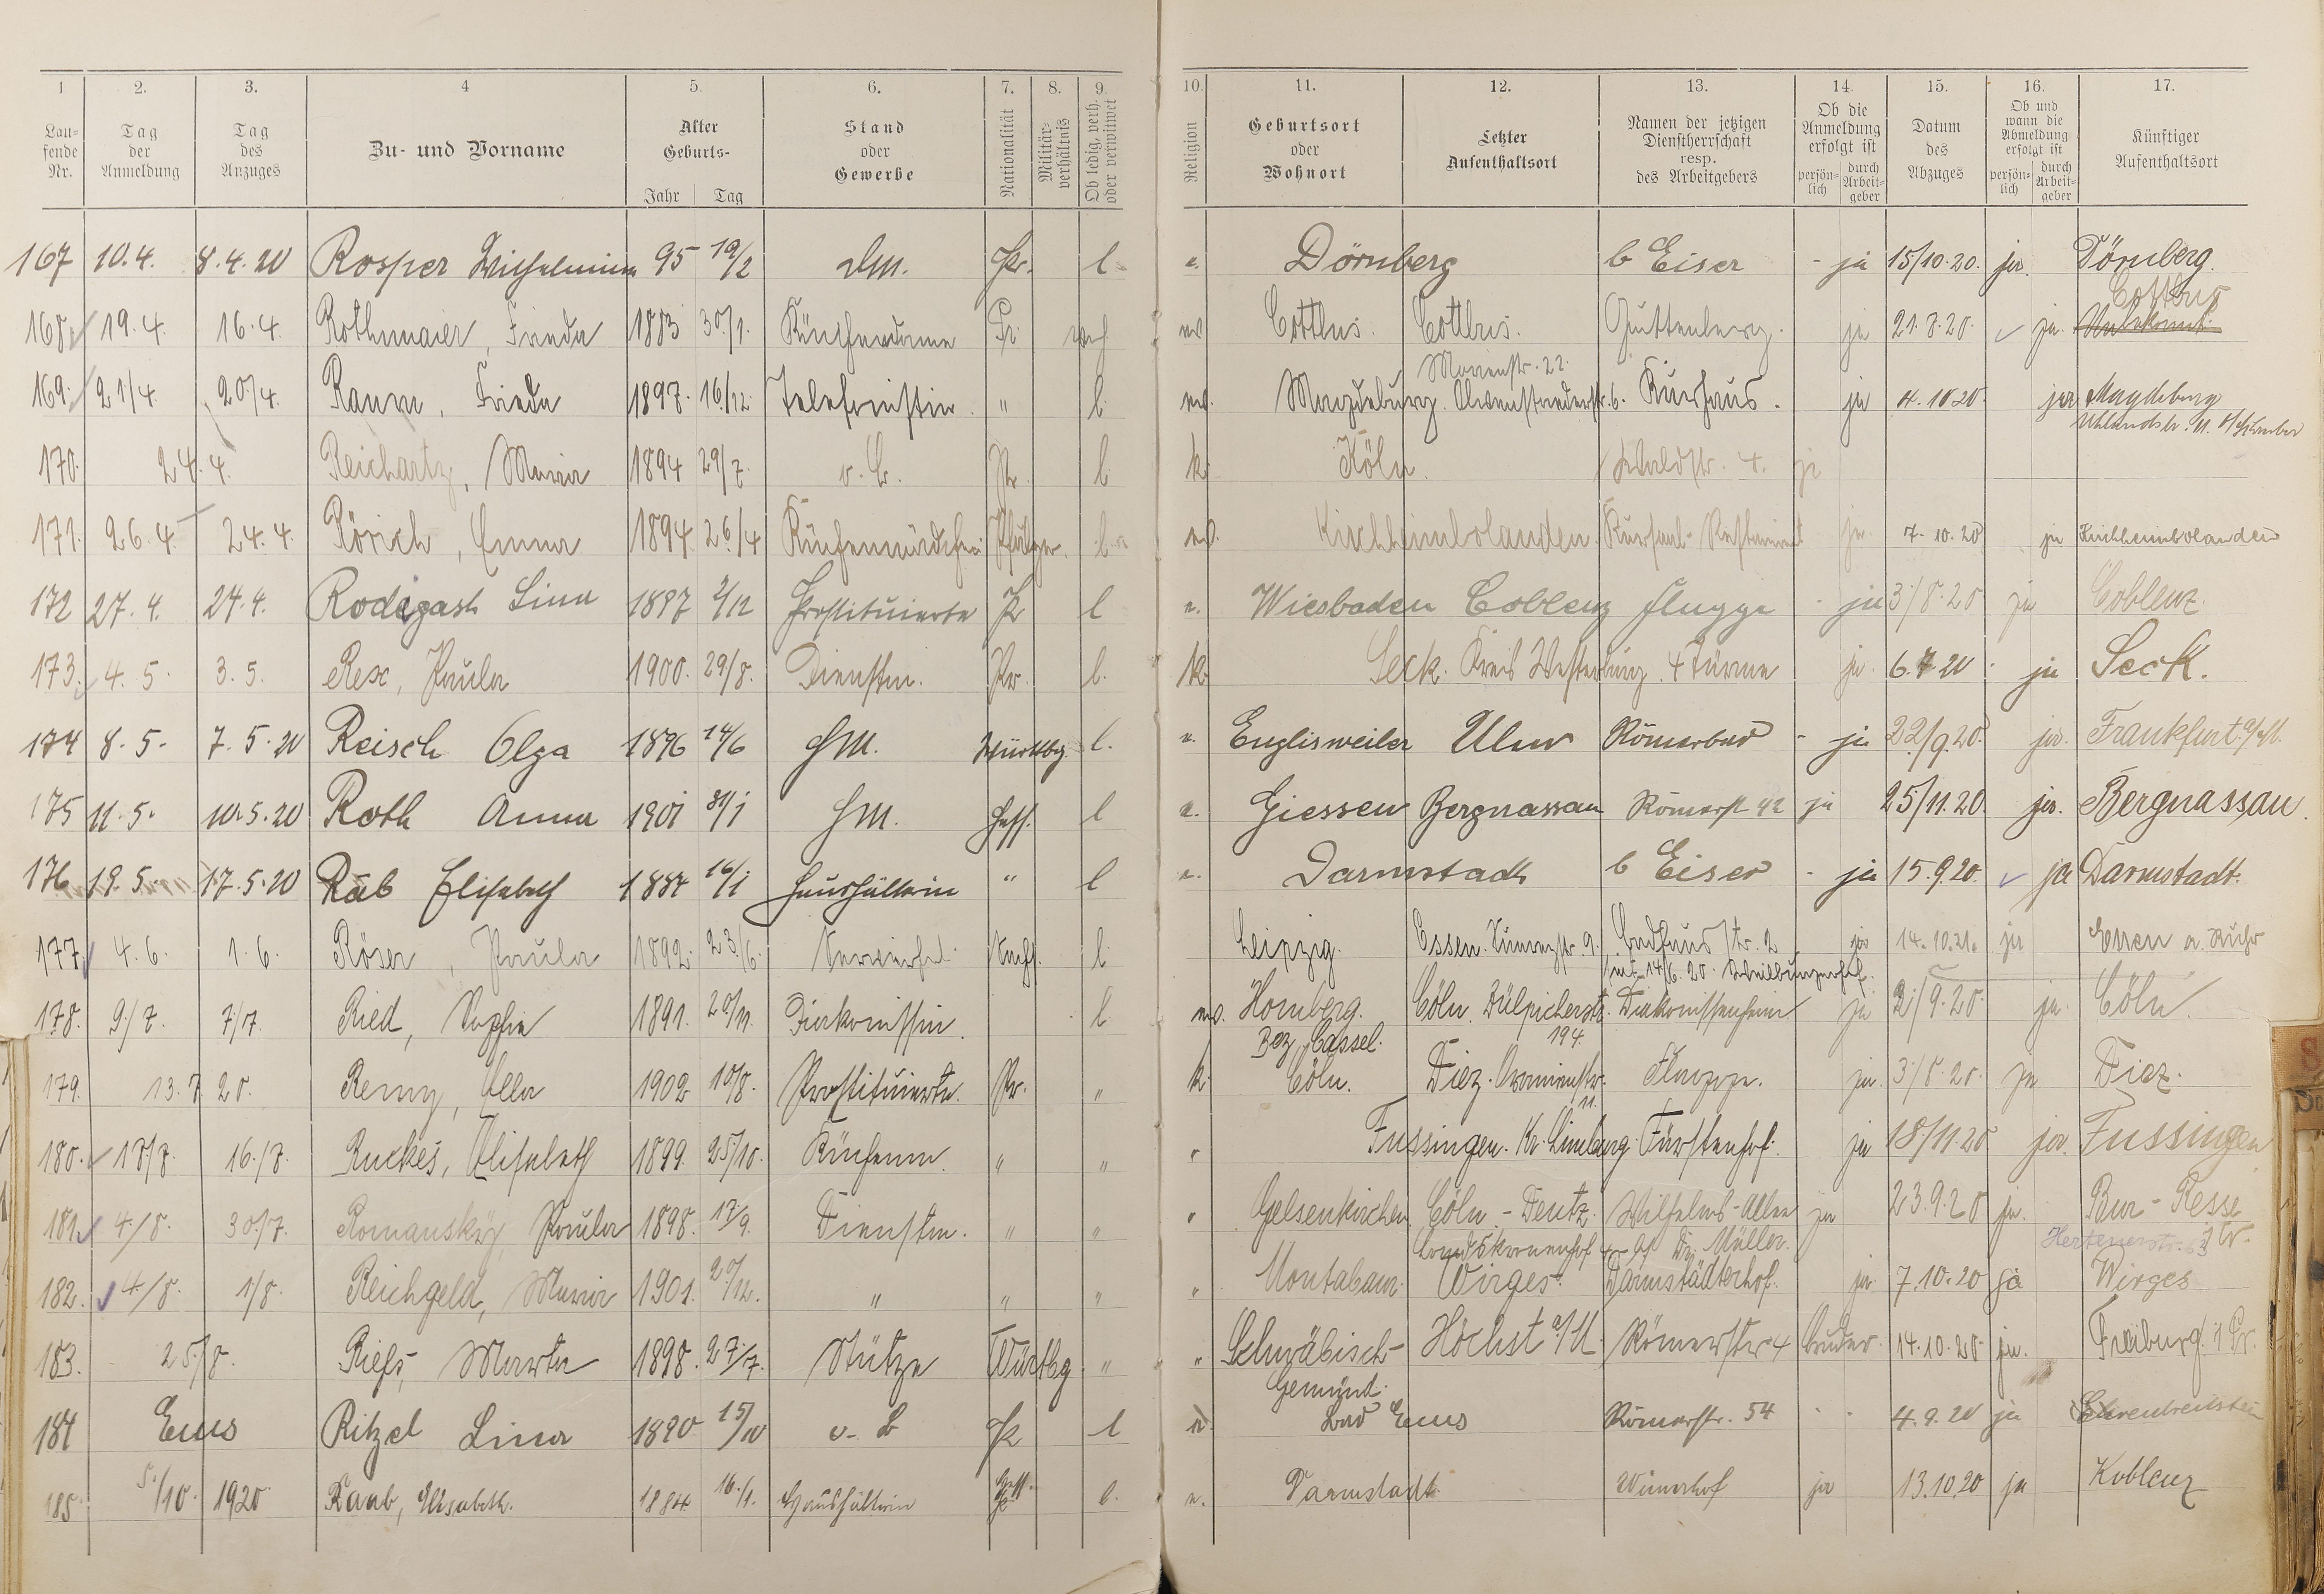 1 2. 3. 4 5. 6. 7. 8. 9. 10. 11. 12. 13. 14. 15. 16. 17.
Lau-fende Nr. Tag der Anmeldung Tag des Anzuges Zu- und Vorname Alter Geburts- Jahr Tag Stand oder Gewerbe Nationalität Militär-verhältnis Ob ledig, verh. oder verwitwet Religion Geburtsort oder Wohnort Letzter Aufenthaltsort Namen der jetzigen Dienstherrschaft resp. des Arbeitgebers Ob die Anmeldung erfolgt ist persön-lich durch Arbeit-geber Datum des Abzuges Ob und wann die Abmeldung erfolgt ist persön-lich durch Arbeit-geber Künftiger Aufenthaltsort
167 10.4. 8.4.20 Rosper Wilhelmine 95 19/2 Dm. Pr. l e. Dörnberg b Eiser - ja 15/10.20. ja. Dörnberg.
Cottbus
168. 19.4. 16.4. Rothmaier, Frieda 1883 30./1. Küchendame Pr. Cottbus. Cottbus. Guttenberg. ja 21.8.20. ja. Unbekannt.
Marienstr. 22.
169. 21/4. 20./4. Raum, Frieda 1897. 16/12. Telefonistin. " l. Magdeburg. 6. Kurhaus. ja 4.10.20. ja Magdeburg
Uhlandstr. 11.
170. 24.4. Reichartz, Maria 1894 29/7. o.B. Pr. l. k. Köln. Waldstr. 4. ja
171. 26.4. 24.4. Rörich, Emma 1894. 26./4 Küchenmädchen Pfälzer. l. Kirchheimbolanden. ja. 7.10.20 ja Kirchheimbolanden
172 27.4. 24.4. Rodigast Lina 1897 2/12 Prostituierte Pr l e. Wiesbaden Coblenz Flugge - ja 3./8.20 ja Coblenz.
173. 4.5. 3.5. Rex, Paula 1900. 29/8. Dienstm. Pr. l. k. Seck. Kreis Westerburg. 4 Türme ja. 6.7.20. ja Seck.
174 8.5. 7.5.20 Reisch Olga 1876 14/6 HM. Württbg. l. e. Englisweiler Ulm Römerbad - ja 22/9.20. ja. Frankfurt a/M.
175 11.5. 10.5.20 Roth Anna 1901 31/1 HM. Hess. l e. Giessen Bergnassau Römerst 42 ja 25/11.20. ja. Bergnassau.
176 19.5. 17.5.20 Rab Elisabeth 1884 16/1 Haushälterin " l e. Darmstadt b Eiser - ja 15.9.20. ja Darmstadt.
177. 4.6. 1.6. Röser, Paula 1892. 23./6. Sachs. l. Leipzig. Essen. 9. Badhausstr. 2 ja 14.10.21. ja Essen a. Ruhr
14/6.20. Weilburgerhof.
178. 9./7. 7/7. Ried, Sophie 1891. 20/11. Diakonissin. l. Homberg. Cöln. Zülpicherstr. Diakonissenheim ja 2./9.20. ja. Cöln.
Bez. Cassel. 194.
179. 13.7.20. Remy, Ella 1902 10/8. Prostituierte. Pr. " k. Cöln. Diez. Oranienstr. Flugge. ja. 3/8.20. ja Diez.
11.
180. 17/7. 16./7. Ruckes, Elisabeth 1899. 25/10. Küchenm. " " " Fussingen. Kr. Limburg. Fürstenhof. ja 18/11.20 ja. Fussingen
181. 4./8. 30./7. Romansky, Paula 1898. 17/9. Dienstm. " " " Gelsenkirchen Cöln-Deutz. Wilhelms-Allee ja 23.9.20 ja. Bur-Resse
Landskronenhof Müller. Hertenerstr.
182. 4./8. 1/8. Reichgeld, Maria 1901. 20/12. " " " " Montabaur. Wirges. Darmstädterhof. ja. 7.10.20 ja Wirges
183. 25./8. Riess, Marta 1898. 27./7. Stütze Württbg " " Schwäbisch- Höchst a/M. Römerstr 4 Bruder. 14.10.20 ja. Freiburg i/Br.
Gemünd.
184 Ems Ritzel Lina 1890 15/10 o. B Pr l e. Bad Ems Römerstr. 54 - - 4.9.20 ja Ehrenbreitstein
185 5./10. 1920 Raab, Elisabeth. 1884 16./1. Haushälterin Hess. l. e. Darmstadt. ja 13.10.20 ja Koblenz